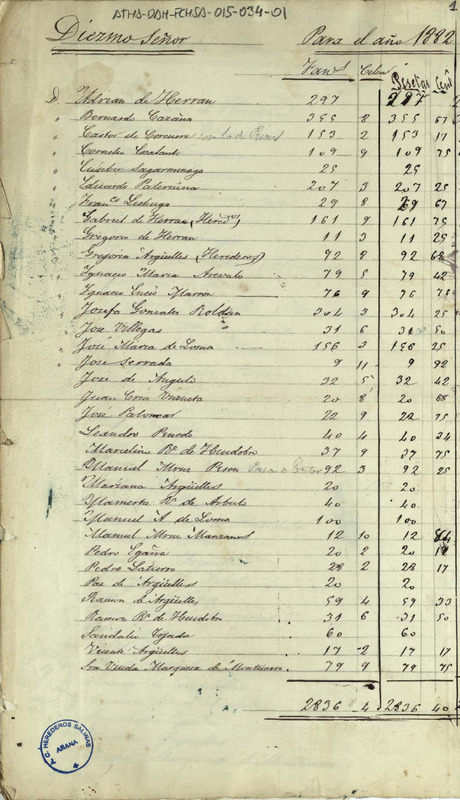 ATHA-DAH-FCHSA-015-034-01
1
Diezmo Señor Para el año 1882
Fans Celem Pesetas Cent
D Adrian de Herran 297 297
" Bernardo Cazaña 355 8 355 67
" Castor de 153 2 153 17
" Cornelio 109 9 109 75
" Eusebio Sagarminaga 25 25
" Eduardo Paternina 207 3 207 25
" Franco Lechuga 29 8 29 67
" Gabriel de Herran (Heredos) 161 9 161 75
" Gregorio de Herran 11 3 11 25
" Gregorio Argüelles (Herederos) 92 8 92 68
" Ignacio Maria Arevalo 79 5 79 42
" Ignacio Encio Marron 76 9 76 75
" Josefa Gonzales Roldan 304 3 304 25
" Jose Villegas 31 6 31 50
" José Maria de Loma 156 3 156 25
" Jose Serrada 9 11 9 92
" Jose de Angulo 32 5 32 42
Juan Cruz 20 8 20 68
José Palomar 22 9 22 75
Leandro Pinedo 40 4 40 34
Marcelino Rs de Huidobro 37 9 37 75
Manuel Mrnz Peson 92 3 92 25
Mariana Argüelles 20 20
Mamerto Rs de Arbulo 40 40
Manuel A. de Loma 100 100
Manuel Mrnz Manzanos 12 10 12 84
Pedro Egaña 20 2 20 18
Pedro Latierro 28 2 28 17
Paz de Argüelles 20 20
Ramon de Argüelles 59 4 59 33
Ramon Rs de Huidobro 31 6 31 50
Sandalio Tejada 60 60
Vicente Argüelles 17 2 17 17
Sra Viuda Marquesa de Montesacro 79 9 79 75
2836 4 2836 40
A.G. HEREDEROS SALINAS
AÑANA